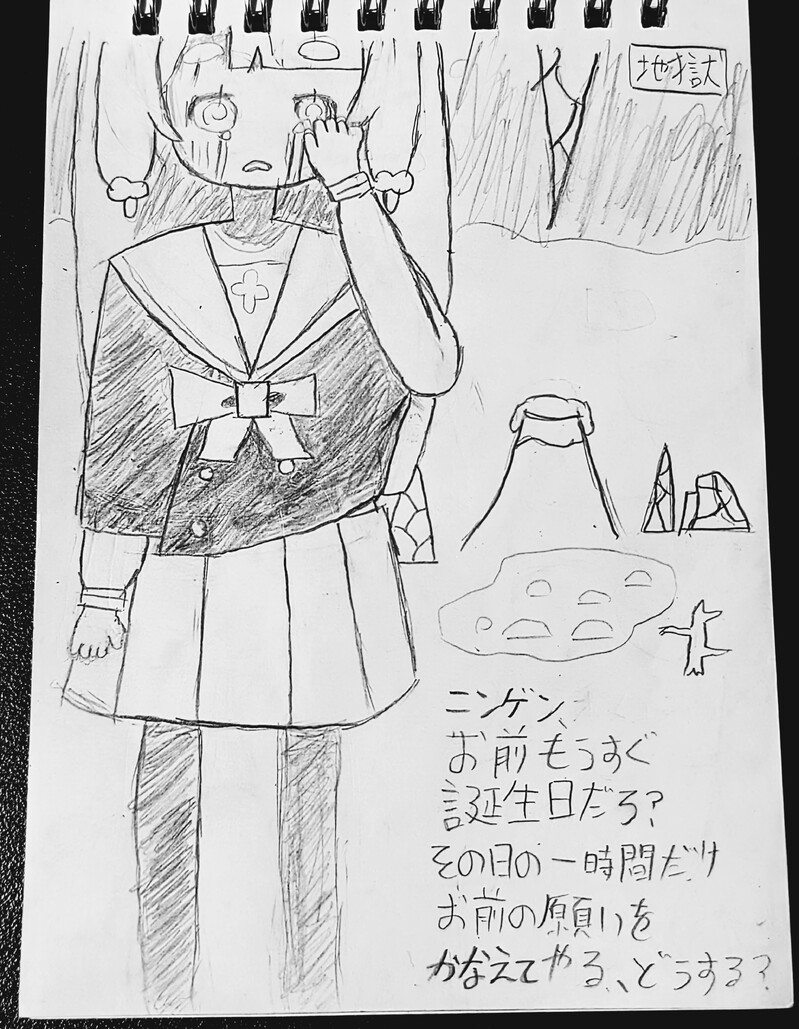 地獄
ニンゲン、
お前もうすぐ
誕生日だろ?
その日の一時間だけ
お前の願いを
かなえてやる、どうする?